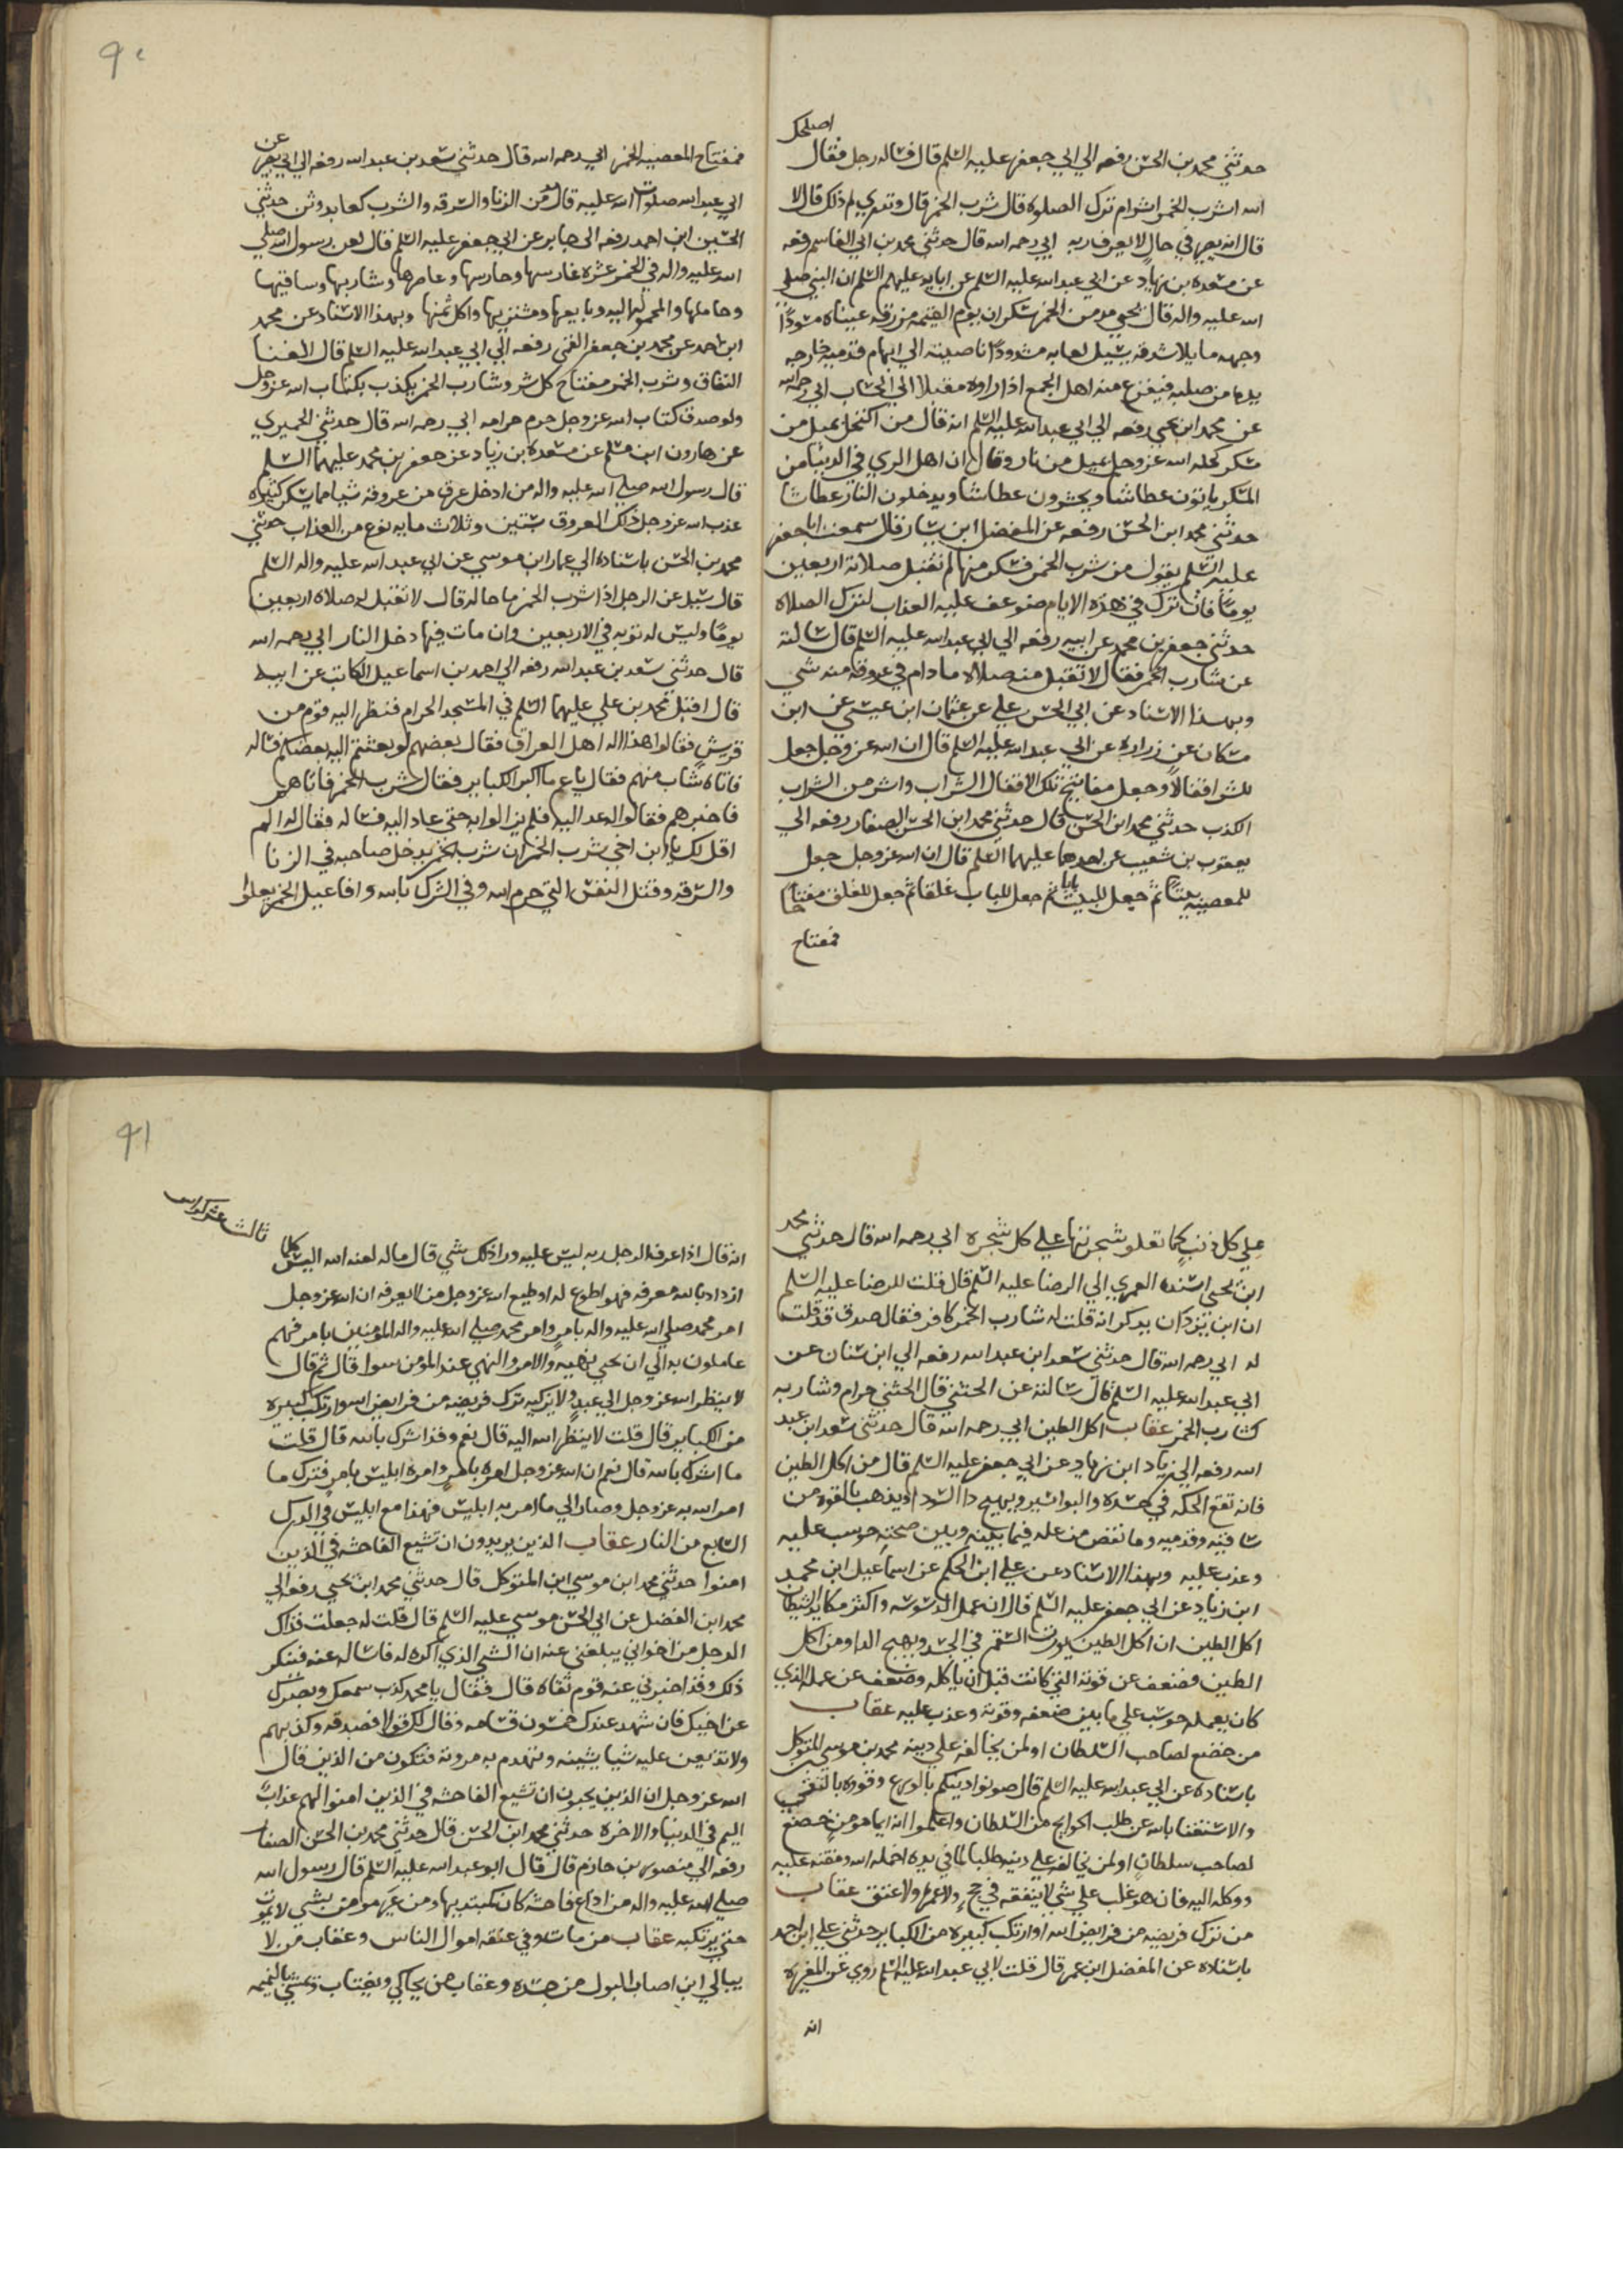 اصلحك
حدثني محمد بن الحسن رفعه الي ابي جعفر عليه السلم قال ساله رجل فقال
الله اشرب الخمر اشر ام ترك الصلوة قال شرب الخمر قال وتدري لم ذلك قال لا
قال انه يصير في حال لا يعرف ربه ابي رحمه الله قال حدثني محمد بن ابي القاسم رفعه
عن مسعده بن زياد عن ابي عبد الله عليه السلم عن ابايه عليهم السلم ان النبي صلي
الله عليه واله قال يجي مدمن الخمر سكران يوم القيمه مزرقه عيناه مسودًا
وجهه مايلا شدقه يسيل لعابه مشدودًا ناصيته الي ابهام قدميه خارجه
يده من صلبه فيفزع منه اهل الجمع اذا راوه مقبلا الي الحساب ابي رحمه الله
عن محمد ابن يحيي رفعه الي ابي عبد الله عليه السلم انه قال من اكتحل بميل من
مسكر كحله الله عز وجل بميل من نار وقال ان اهل الري في الدنيا من
المسكر يموتون عطاشا ويحشرون عطاشا ويدخلون النار عطاشا
حدثني محمد ابن الحسن رفعه عن المفضل ابن يسار قال سمعت ابا جعفر
عليه السلم يقول من شرب الخمر فسكر منها لم تقبل صلاته اربعين
يومًا فان ترك في هذه الايام ضوعف عليه العذاب لترك الصلاة
حدثني جعفر بن محمد عن ابيه رفعه الي ابي عبد الله عليه السلم قال سالته
عن شارب الخمر فقال لا تقبل منه صلاة ما دام في عروقه منه شي
وبهذا الاسناد عن ابي الحسن علي عن عثمان ابن عيسي عن ابن
مسكان عن زراره عن ابي عبد الله عليه السلم قال ان الله عز وجل جعل
للشر اقفالا وجعل مفاتيح تلك الاقفال الشراب واشر من الشراب
الكذب حدثني محمد ابن الحسن قال حدثني محمد ابن الحسن الصفار رفعه الي
يعقوب بن شعيب عن احدهما عليهما السلم قال ان الله عز وجل جعل
للمعصيه بيتًا ثم جعل للبيت بابا ثم جعل للباب غلقا ثم جعل للغلق مفتاحًا
فمفتاح
٩٠
فمفتاح المعصيه الخمر ابي رحمه الله قال حدثني سعد بن عبد الله رفعه الي ابي بصير عن
ابي عبد الله صلوات الله عليه قال مدمن الزنا والسرقه والشرب كعابد وثن حدثني
الحسين ابن احمد رفعه الي جابر عن ابي جعفر عليه السلم قال لعن رسول الله صلي
الله عليه واله في الخمر عشره غارسها وحارسها وعاصرها وشاربها وساقيها
وحاملها والمحموله اليه وبايعها ومشتريها واكل ثمنها وبهذا الاسناد عن محمد
ابن احمد عن محمد بن جعفر القمي رفعه الي ابي عبد الله عليه السلم قال الغنا
النفاق وشرب الخمر مفتاح كل شر وشارب الخمر يكذب بكتاب الله عز وجل
ولو صدق كتاب الله عز وجل حرم حرامه ابي رحمه الله قال حدثني الحميري
عن هارون ابن مسلم عن مسعدة بن زياد عن جعفر بن محمد عليهما السلم
قال رسول الله صلي الله عليه واله من ادخل عرق من عروقه شيا مما يسكر كثيره
عذب الله عز وجل ذلك العروق بستين وثلاث مايه نوع من العذاب حدثني
محمد بن الحسن باسناده الي عمار ابن موسي عن ابي عبد الله عليه واله السلم
قال سيل عن الرجل اذا شرب الخمر ما حاله قال لا تقبل له صلاة اربعين
يومًا وليس له توبه في الاربعين وان مات فيها دخل النار ابي رحمه الله
قال حدثني سعد بن عبد الله رفعه الي احمد بن اسماعيل الكاتب عن ابيه
قال اقبل محمد بن علي عليهما السلم في المسجد الحرام فنظر اليه قوم من
قريش فقالوا هذا اله اهل العراق فقال بعضهم لو بعثتم اليه بعضكم فساله
فاتاه شاب منهم فقال يا عم ما اكبر الكباير فقال شرب الخمر فاتاهم
فاخبرهم فقالوا له عد اليه فلم يزالوا به حتي عاد اليه فساله فقال له الم
اقل لك يا ابن اخي شرب الخمر ان شرب الخمر يدخل صاحبه في الزنا
والسرقه وقتل النفس التي حرم الله وفي الشرك بالله وافاعيل الخمر يعلوا
علي كل ذنب كما تعلو شجرتها علي كل شجره ابي رحمه الله قال حدثني محمد
ابن يحيي اسنده العمري الي الرضا عليه السلم قال قلت للرضا عليه السلم
ان ابن يزدان يذكر انه قلت له شارب الخمر كافر فقال صدق قد قلت
له ابي رحمه الله قال حدثني سعد ابن عبد الله رفعه الي ابن سنان عن
ابي عبد الله عليه السلم قال سالته عن الحثني قال الحثني حرام وشاربه
كشارب الخمر عقاب اكل الطين ابي رحمه الله قال حدثني سعد ابن عبد
الله رفعه الي زياد ابن زياد عن ابي جعفر عليه السلم قال من اكل الطين
فانه تقع الحكه في جسده والبواسير ويهيج دا السودا ويذهب بالقوه من
ساقيه وقدميه وما نقص من عمله فيما بينه وبين صحته حوسب عليه
وعذب عليه وبهذا الاسناد عن علي ابن الحكم عن اسماعيل ابن محمد
ابن زياد عن ابي جعفر عليه السلم قال ان عمل الوسوسه واكثر مكايد الشيطان
اكل الطين ان اكل الطين يورث السقم في الجسد ويهيج الدا ومن اكل
الطين فضعف عن قوته التي كانت قبل ان ياكله وضعف عن عمله الذي
كان يعمله حوسب علي ما بين ضعفه وقوته وعذب عليه عقاب
من خضع لصاحب السلطان او لمن يخالفه علي دينه محمد بن موسي المتوكل
باسناده عن ابي عبد الله عليه السلم قال صونوا دينكم بالورع وقووه بالتقي
والاستغنا بالله عن طلب الحوايج من السلطان واعلموا انه ايما مومن خضع
لصاحب سلطان او لمن يخالفه علي دينه طلبا لما في يده اخمله الله ومقته عليه
ووكله اليه فان هو غلب علي شي لا ينفقه في حج ولا عمره ولا عتق عقاب
من ترك فريضه من فرايض الله او ارتكب كبيره من الكباير حدثني علي ابن احمد
باسناده عن المفضل ابن عمر قال قلت لابي عبد الله عليه السلم روي عن المغيره
انه
٩١
ثالث عشر كراس
انه قال اذا عرف الرجل ربه ليس عليه ورا ذلك شي قال ماله لعنه الله اليس كلما
ازداد بالله معرفه فهو اطوع له او طيع الله عز وجل من لا يعرفه ان الله عز وجل
امر محمد صلي الله عليه واله بامر وامر محمد صلي الله عليه واله المومنين بامر فهم
عاملون به الي ان يجي نهيه والامر والنهي عند المومن سوا قال ثم قال
لا ينظر الله عز وجل الي عبد ولا يزكيه ترك فريضه من فرايض الله او ارتكب كبيره
من الكباير قال قلت لا ينظر الله اليه قال نعم وقد اشرك بالله قال قلت
ما اشرك بالله قال نعم ان الله عز وجل امره بامر وامره ابليس بامر فترك ما
امر الله به عز وجل وصار الي ما امر به ابليس فهذا مع ابليس في الدرك
السابع من النار عقاب الذين يريدون ان تشيع الفاحشه في الذين
امنوا حدثني محمد ابن موسي ابن المتوكل قال حدثني محمد ابن يحيي رفعه الي
محمد ابن الفضل عن ابي الحسن موسي عليه السلم قال قلت له جعلت فداك
الرجل من اخواني يبلغني عنه ان الشي الذي اكره له فاساله عنه فينكر
ذلك وقد اخبرني عنه قوم ثقاه قال فقال يا محمد كذب سمعك وبصرك
عن اخيك فان شهد عندك خمسون قسامه وقال لك قولا فصدقه وكذبهم
ولا تذيعن عليه شيا يشينه وتهدم به مروته فتكون من الذين قال
الله عز وجل ان الذين يحبون ان تشيع الفاحشه في الذين امنوا لهم عذابٌ
اليم في الدنيا والاخره حدثني محمد ابن الحسن قال حدثني محمد بن الحسن الصفار
رفعه الي منصور بن حازم قال قال ابو عبد الله عليه السلم قال رسول الله
صلي الله عليه واله من اذاع فاحشه كان كمبتديها ومن عير مومن بشي لا يموت
حتي يرتكبه عقاب من مات وفي عنقه اموال الناس وعقاب من لا
يبالي اين اصاب البول من جسده وعقاب من يحاكي ويغتاب ويمشي بالنميمه